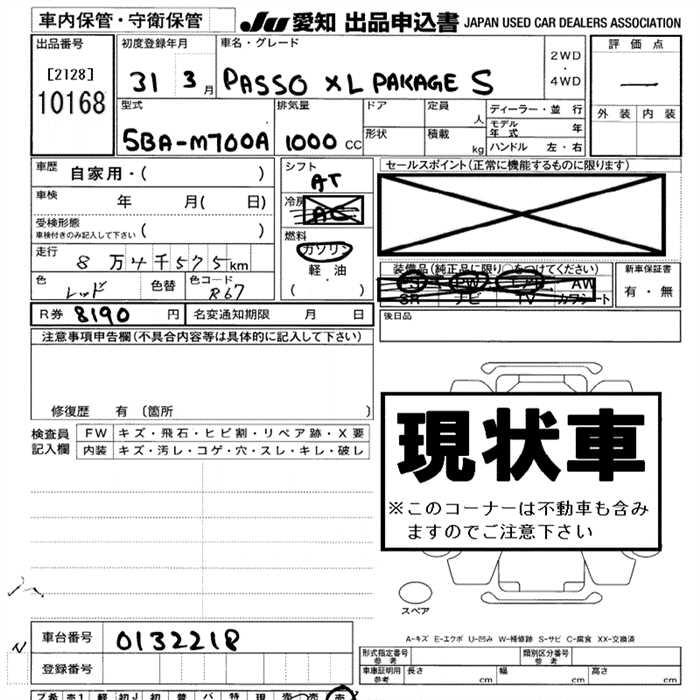 車内保管・守衛保管 JU 愛知 出品申込書 JAPAN USED CAR DEALERS ASSOCIATION
出品番号 初度登録年月 車名・グレード 評価点
[2128] 31 3月 PASSO XL PAKAGE S 2WD・4WD —
10168
型式 排気量 ドア 定員 人 ディーラー・並行 外装 内装
モデル年式 年
5BA-M700A 1000 CC 形状 積載 kg ハンドル 左・右
車歴 自家用・( ) シフト AT セールスポイント(正常に機能するものに限ります)
車検 年 月( 日) 冷房 AC
受検形態 車検付きのみ記入して下さい ( ) 燃料 ガソリン
走行 8万4千575km 軽・油 装備品(純正品に限り○をつけてください) 新車保証書
色 レッド 色替 色コード R67 ( ・ ) PS PW エアB AW 有・無
SR ナビ TV カワシート
R券 8190円 名変通知期限 月 日 後日品
注意事項申告欄(不具合内容等は具体的に記入して下さい)
修復歴 有 〔箇所 〕
検査員記入欄 FW キズ・飛石・ヒビ割・リペア跡・X要
内装 キズ・汚レ・コゲ・穴・スレ・キレ・破レ
現状車
※このコーナーは不動車も含み
ますのでご注意下さい
スペア
A-キズ E-エクボ U-凹み W-補修跡 S-サビ C-腐食 XX-交換済
車台番号 0132218
登録番号
形式指定番号 参考 類別区分番号 参考
車庫証明用 参考 長さ cm 幅 cm 高さ cm